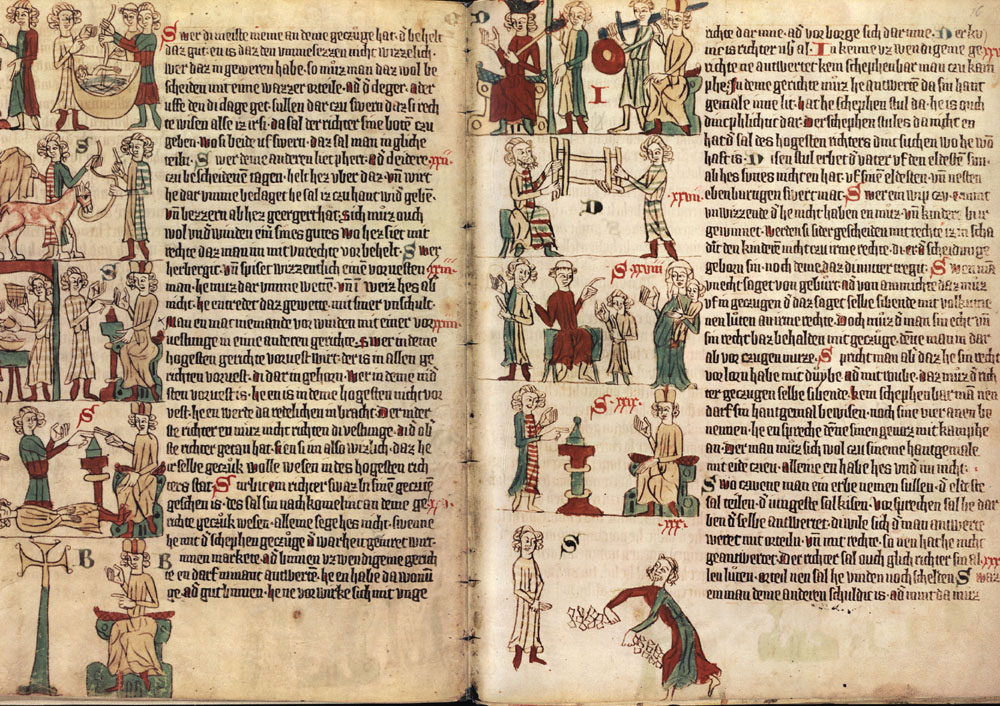 Swer di meiste mene an deme geczüge hat · d̉ behelt
daz gut · en is daz den ummesezzen nicht wizzelich ·
wer daz in geweren habe · so müz man daz wol be
scheiden mit eime wazzer orteile · ad̉ d̉ cleger · ader
uffe den di clage get · sullen dar czu swern daz si rech
te wisen alse iz ir si · da sal der richter sine botē czu
geben · wo si beide uf swern · daz sal man in gliche
teile · Swer deme anderen liet phert · ad̉ cleidere · xxii ·
czu bescheidenen tagen · helt hez vber daz · vn̄ wirt
he dar vmme bedaget he sal iz czu hant wid̉ gebē ·
vn̄ bezzern ab hez geergert hat · sich müz ouch
wol vnd̉ winden ein̄ sines gutes wo hez siet mit
rechte daz man im mit vnrechte vor behelt · Swer
herbergit · vn̄ spiset wizzentlich einē vorvesten xxiii ·
man · he muz dar vmme wetten · vn̄ weiz hes ab
nicht · he entredet daz gewette · mit siner vnschult ·
Man en mac niemande vor winden mit einer vor xxiiii
vestunge in eine anderen gerichte · Swer in deme
hogesten gerichte vorvest wirt · der is in allen ge
richten vorvest · di dar in gehorn · wer in deme nid̉
sten vorvest is · he en is in deme hogesten nicht vor
vest · he en werde da redelichen in bracht · Der nider
ste richter en müz nicht richten di vestunge · di d̉ ob̉
ste richter getan hat · si en si im also wizlich · daz he
ir selbe geczük wolle wesen in des hogesten rich
ters stat · Stirbit ein richter swaz bi sime geczite
geschen is · des sal sin nach komelinc an deme ge xxv ·
richte geczük wesen · alleine sege hes nicht · swenne
he mit d̉ schephen geczüge d̉ warheit geinret wirt ·
Binnen markete · ad̉ binnen vzwendigeme gerich
te en darf nimant antwertē · he en habe da wonū
ge · ad̉ gut binnen · he ne vorwirke sich mit unge
16
richte dar inne · ad̉ vorborge sich dar inne · Der ku
nic is richter ubir al · In keime vzwendigeme ge
richte ne antwertet kein schephenbar man czu kam
phe · In deme gerichte müz he antwertē da sin hant
gemale inne lit · hat he schephen stul da · he is ouch
dincphlichtic dar · Der schephen stules da nicht en
hat d̉ sal des hogesten richters dinc suchen wo he wo
haft is · Disen stul erbet d̉ vater vf den eldesten sun ·
ab hes sunes nicht en hat · vf sinē eldesten · vn̄ nesten
ebenburtigen swert mac · Swer ein wip czu e nimt xxvii
vnwizzende d̉ he nicht haben en müz · vn̄ kinder bi ir
gewinnet · werden si sider gescheiden mit rechte iz in scha
dit den kinderē nicht czu irme rechte · di er d̉ scheidunge
geborn sin · noch deme · daz di muter tregit · Swen mā xxviii
vnecht saget von geburt · ad̉ von ammichte daz müz
vf in geczugen d̉ daz saget selbe sibende mit volkumē
nen lüten an irme rechte · Doch müz d̉ man sin echt vn̄
sin recht baz behalden mit geczüge · dēne man im dar
ab vor czugen müze · Spricht man ab daz he sin recht
vorlorn habe mit düybe · ad̉ mit roube · daz müz d̉ rich
ter geczugen selbe sibende · kein schephenbar mā nen
darf sin hantgemal bewisen · noch sine vier anen be
nennen · he en spreche dēne sinen genoz mit kamphe
an · Der man müz sich wol czu sineme hantgemale
mit eide czien · alleine en habe hes vnd̉ im nicht ·
S · xxix ·
Swo czwene man ein erbe nemen sullen · d̉ eldeste
sal teilen · d̉ iungeste sal kisen · vorsprechen sal he dar
ben d̉ selbe antwertet · di wile sich d̉ man antwerte
wertet mit orteiln · vn̄ mit rechte · so nen hat he nicht
geantwertet · Der richter sal ouch glich richter sin al
len lüten · orteil nen sal he vinden noch schelden · Swaz
ein man deme anderen schuldic is · ad̉ nimt da müz
xxx
S
S
S
S
B
B
I
D
S xxviii
S